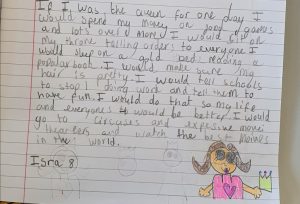 If I was the queen for one day I
would spend my money on good of games
and lots over a more I would sit on
my throne telling orders to everyone I
would sleep on a gold bed, reading a
popular book. I would make sure my
hair is pretty. I would tell schools
to stop doing work and tell them to
have fun. I would do that so my life
and everyone's to would be better. I would
go to circuses and expesive movie
theaters and watch the best movies
in the world.
Isra 8